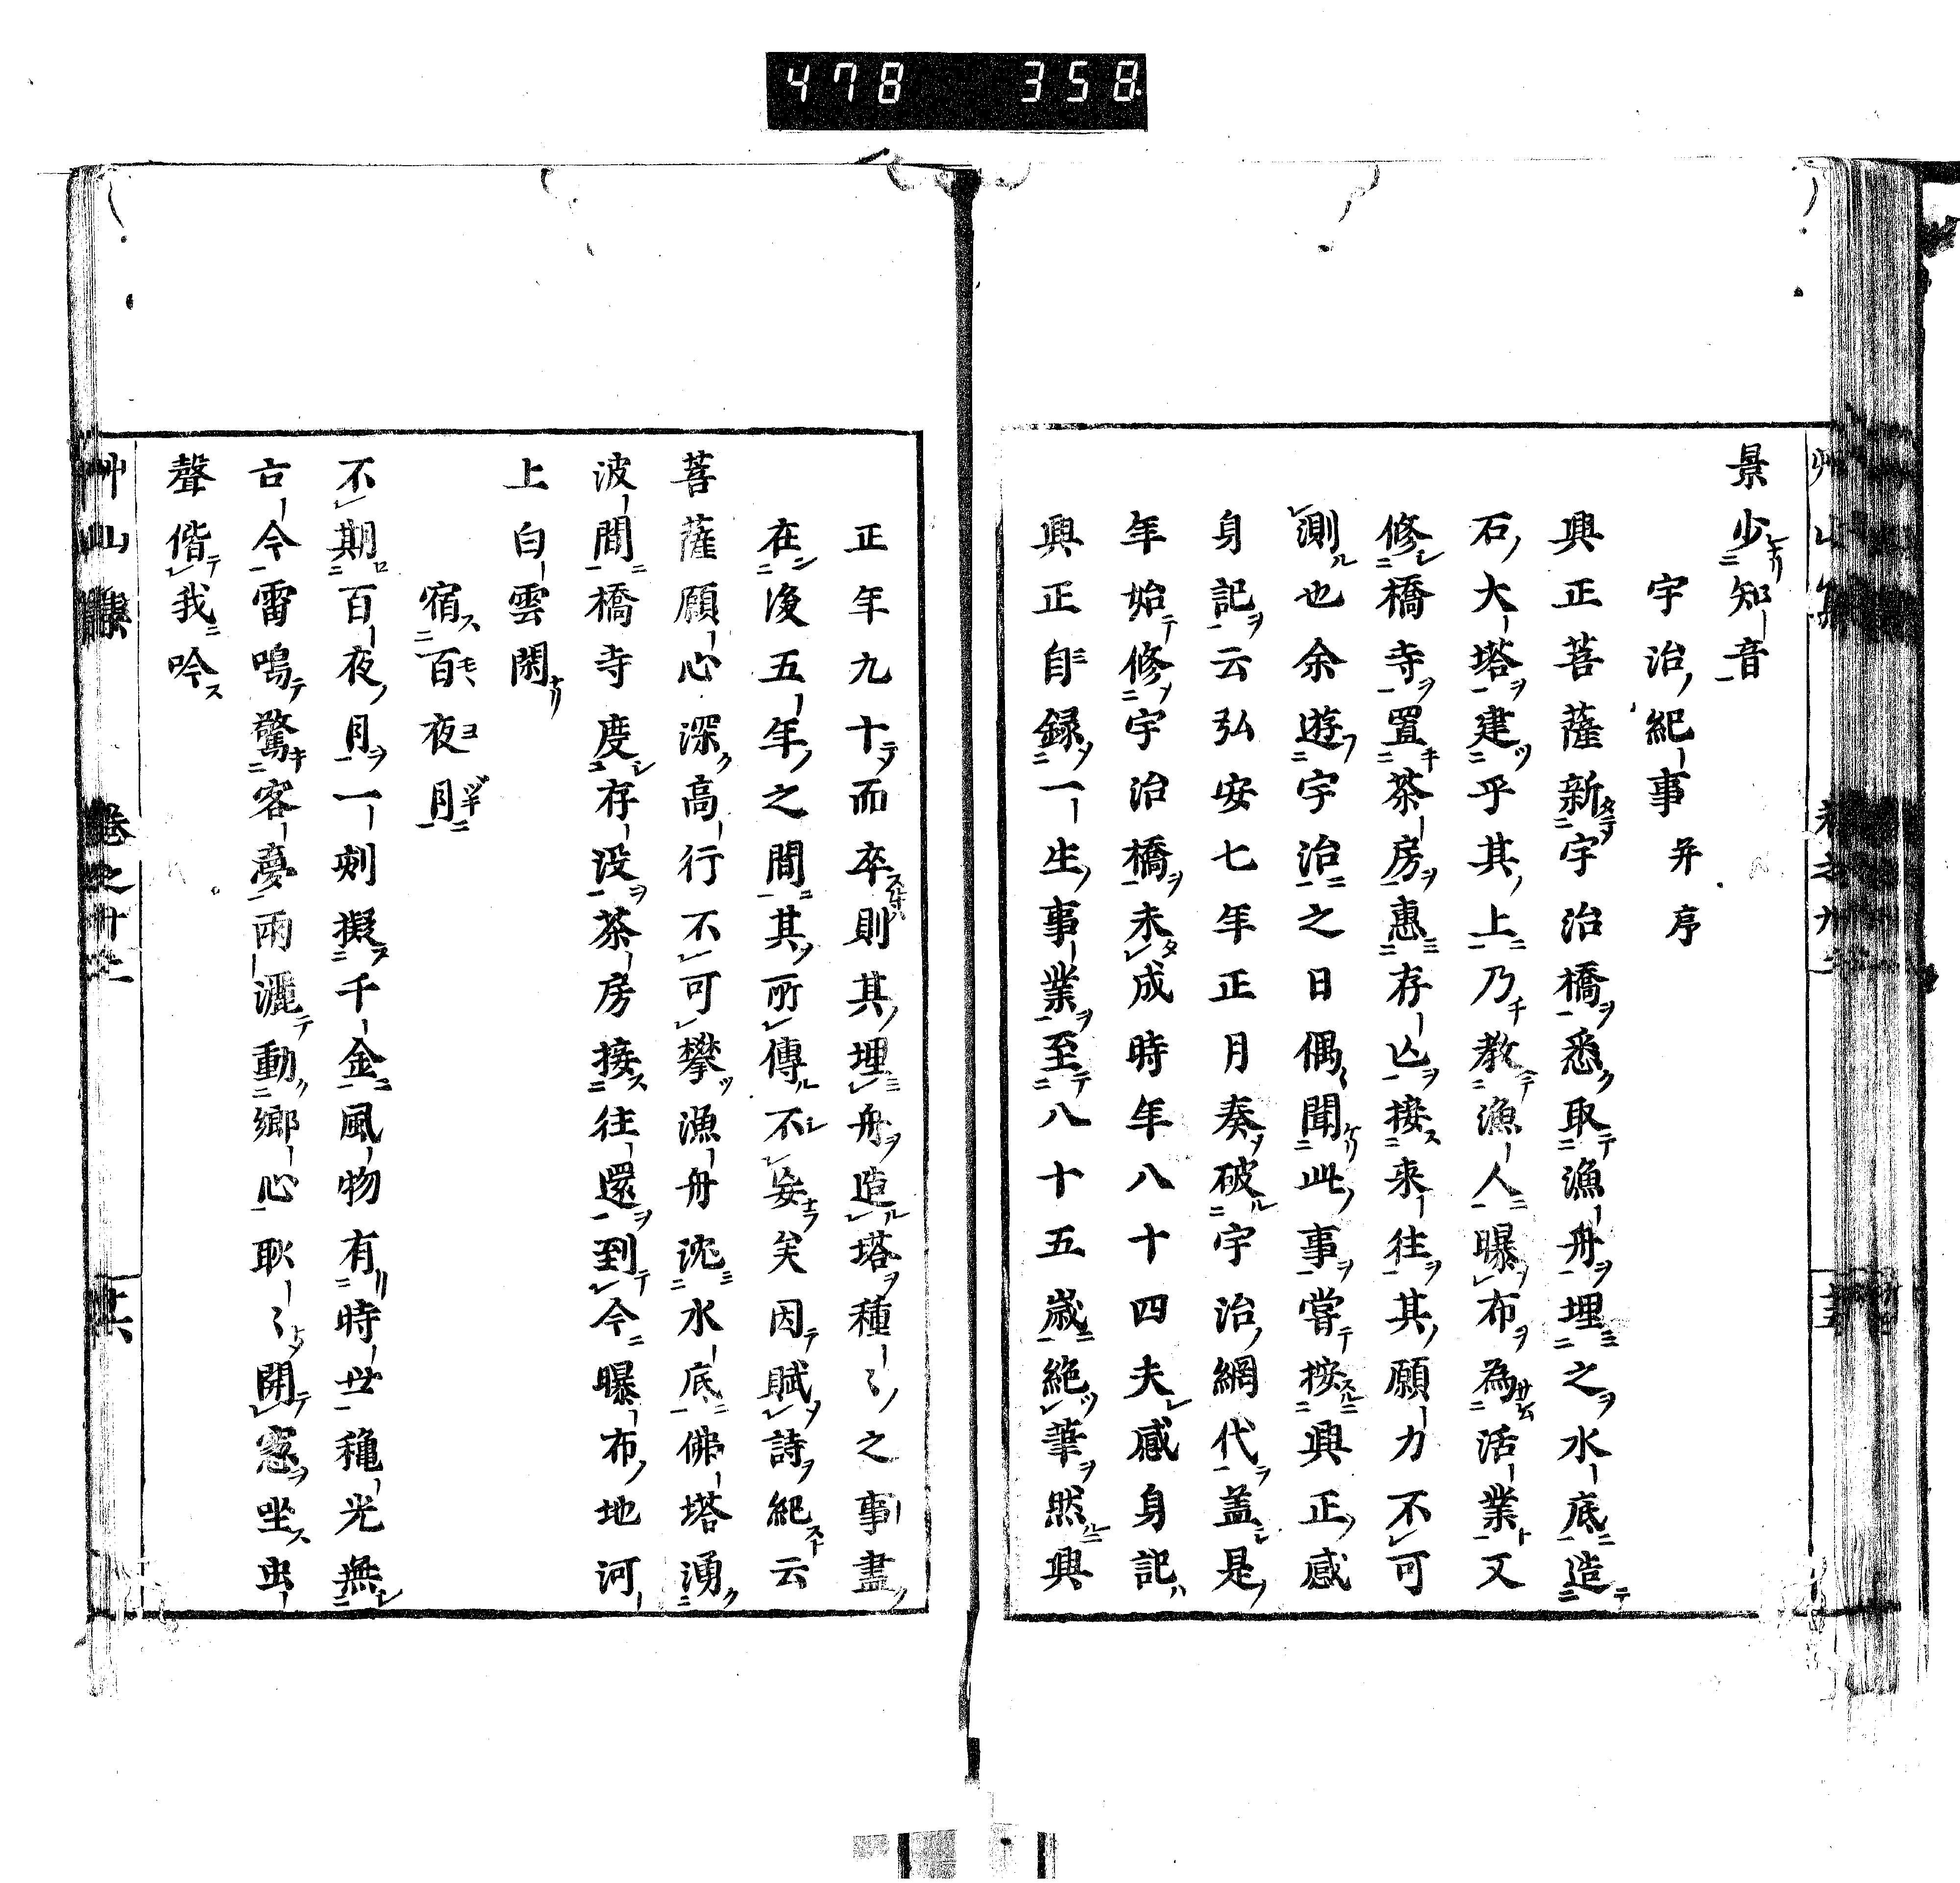 478 358
景少知音
宇治紀事 并序
興正菩薩新宇治橋悉取漁舟埋之水底造
石大塔建乎其上乃教漁人曝布為活業又
修橋寺置茶房惠存亡接来往其願力不可
測也余遊宇治之日偶聞此事嘗按興正感
身記云弘安七年正月奏破宇治網代盖是
年始修宇治橋未成時年八十四夫感身記
興正自録一生事業至八十五歳絶筆然興
正年九十而卒則其埋舟造塔種〻之事盡
在後五年之間其所傳不妄矣因賦詩紀云
菩薩願心深高行不可攀漁舟沈水底佛塔湧
波間橋寺度存没茶房接往還到今曝布地河
上白雲閑
宿百夜月
不期百夜月一刻擬千金風物有時世穐光無
古今雷鳴驚客夢雨灑動鄉心耿〻開窓坐虫
聲偕我吟
艸山集 卷之廿二 十六